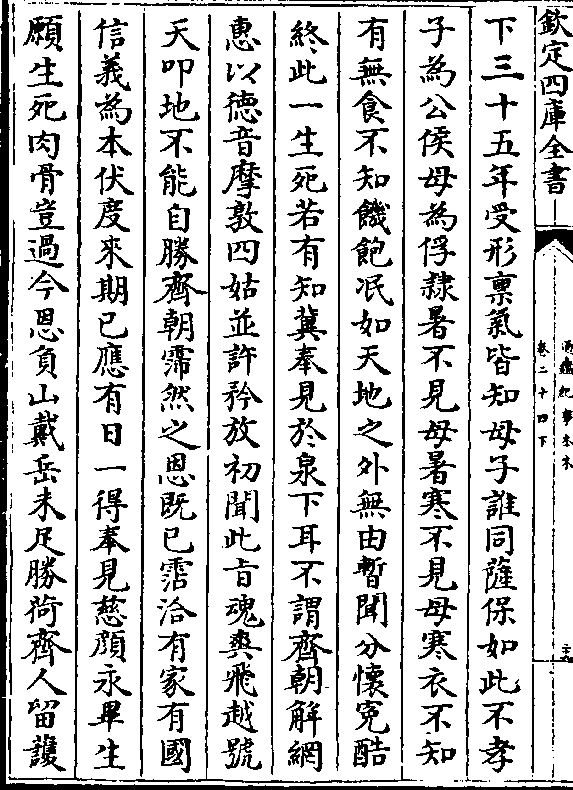 欽定四庫全書
通鑑紀事本末
卷二十四下
下三十五年受形禀氣皆知母子誰同薩保如此不孝
子為公侯母為俘隸暑不見母暑寒不見母寒衣不知
有無食不知饑飽泯如天地之外無由暫聞分懷寃酷
終此一生死若有知冀奉見於泉下耳不謂齊朝解網
惠以德音摩敦四姑並許矜放初聞此㫖魂爽飛越號
天叩地不能自勝齊朝霈然之恩既已霑洽有家有國
信義為本伏度來期已應有日一得奉見慈顔永畢生
願生死肉骨豈過今恩負山戴岳未足勝荷齊人留䕶